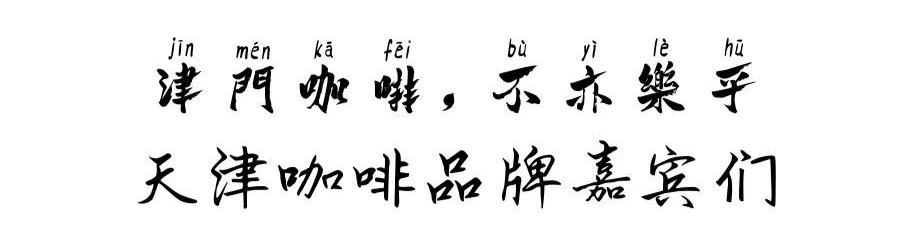 jīn mén kā fēi bù yì lè hū
津門咖啡，不亦樂乎
天津咖啡品牌嘉宾们